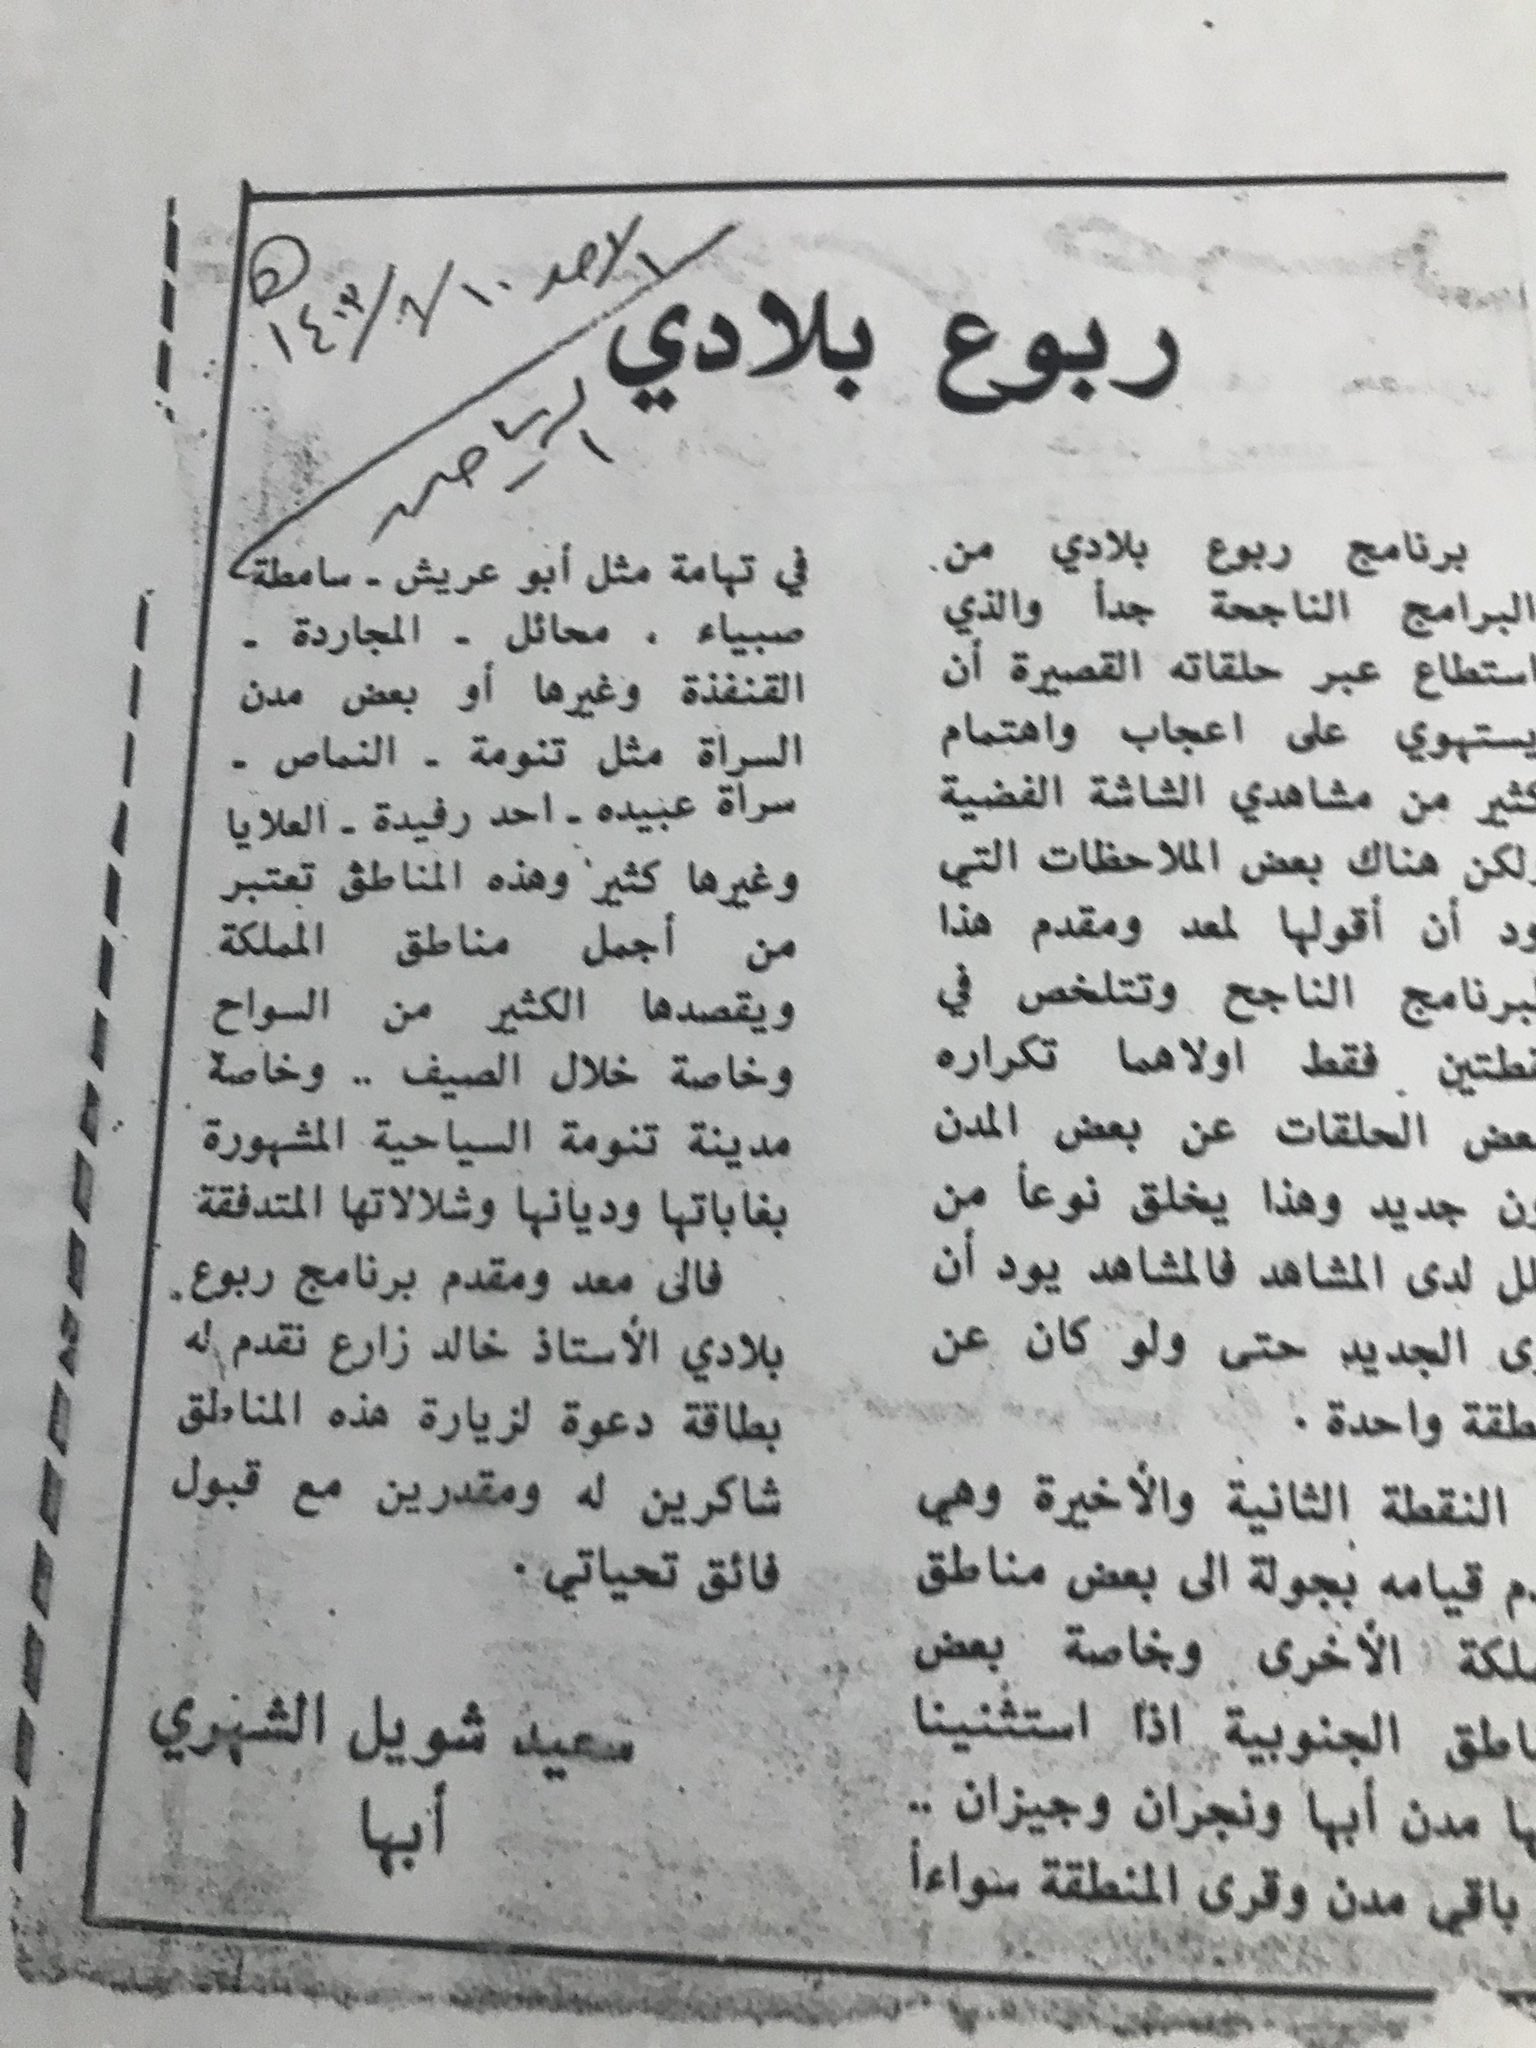 ربوع بلادي
الاحد ١٠/٦/١٤٠٣
الرياض
برنامج ربوع بلادي من
البرامج الناجحة جداً والذي
استطاع عبر حلقاته القصيرة أن
يستهوي على اعجاب واهتمام
كثير من مشاهدي الشاشة الفضية
ولكن هناك بعض الملاحظات التي
ود أن أقولها لمعد ومقدم هذا
لبرنامج الناجح وتتلخص في
قطتين فقط اولاهما تكراره
عض الحلقات عن بعض المدن
ون جديد وهذا يخلق نوعاً من
لل لدى المشاهد فالمشاهد يود أن
ى الجديد حتى ولو كان عن
طقة واحدة .
النقطة الثانية والأخيرة وهي
م قيامه بجولة الى بعض مناطق
ملكة الأخرى وخاصة بعض
ناطق الجنوبية اذا استثنينا
ها مدن أبها ونجران وجيزان ..
باقي مدن وقرى المنطقة سواءاً
في تهامة مثل أبو عريش ـ سامطة
صبياء . محائل ـ المجاردة ـ
القنفذة وغيرها أو بعض مدن
السراة مثل تنومة ـ النماص ـ
سراة عبيده ـ احد رفيدة ـ العلايا
وغيرها كثير وهذه المناطق تعتبر
من أجمل مناطق المملكة
ويقصدها الكثير من السواح
وخاصة خلال الصيف .. وخاصة
مدينة تنومة السياحية المشهورة
بغاباتها وديانها وشلالاتها المتدفقة
فالى معد ومقدم برنامج ربوع
بلادي الأستاذ خالد زارع نقدم له
بطاقة دعوة لزيارة هذه المناطق
شاكرين له ومقدرين مع قبول
فائق تحياتي .
سعيد شويل الشهري
أبها